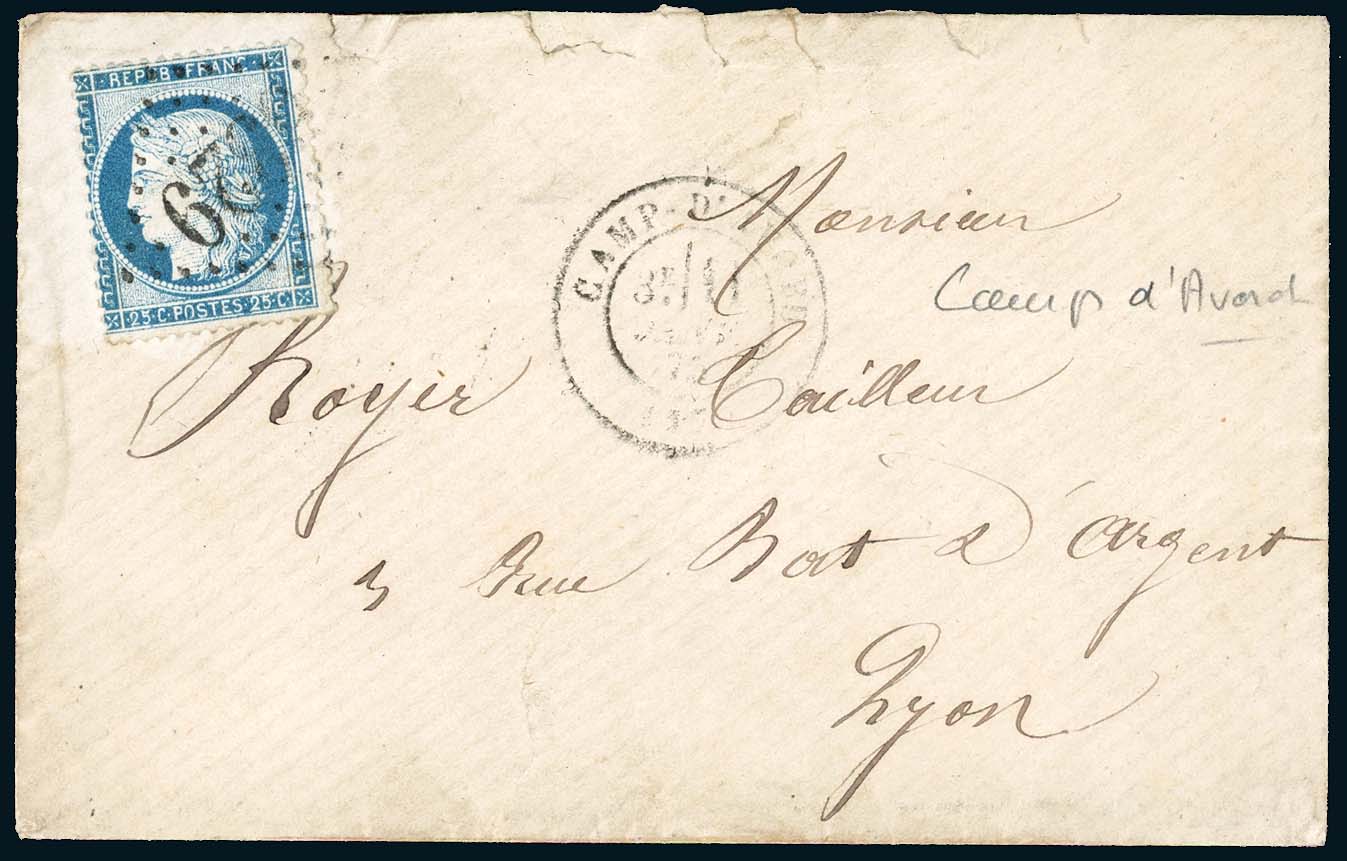 REPUB. FRANC.
25 C. POSTES 25 C.
CAMP-D'
Monsieur
Camp d'Avord
Royer Tailleur
3 Rue Bat d'argent
Lyon